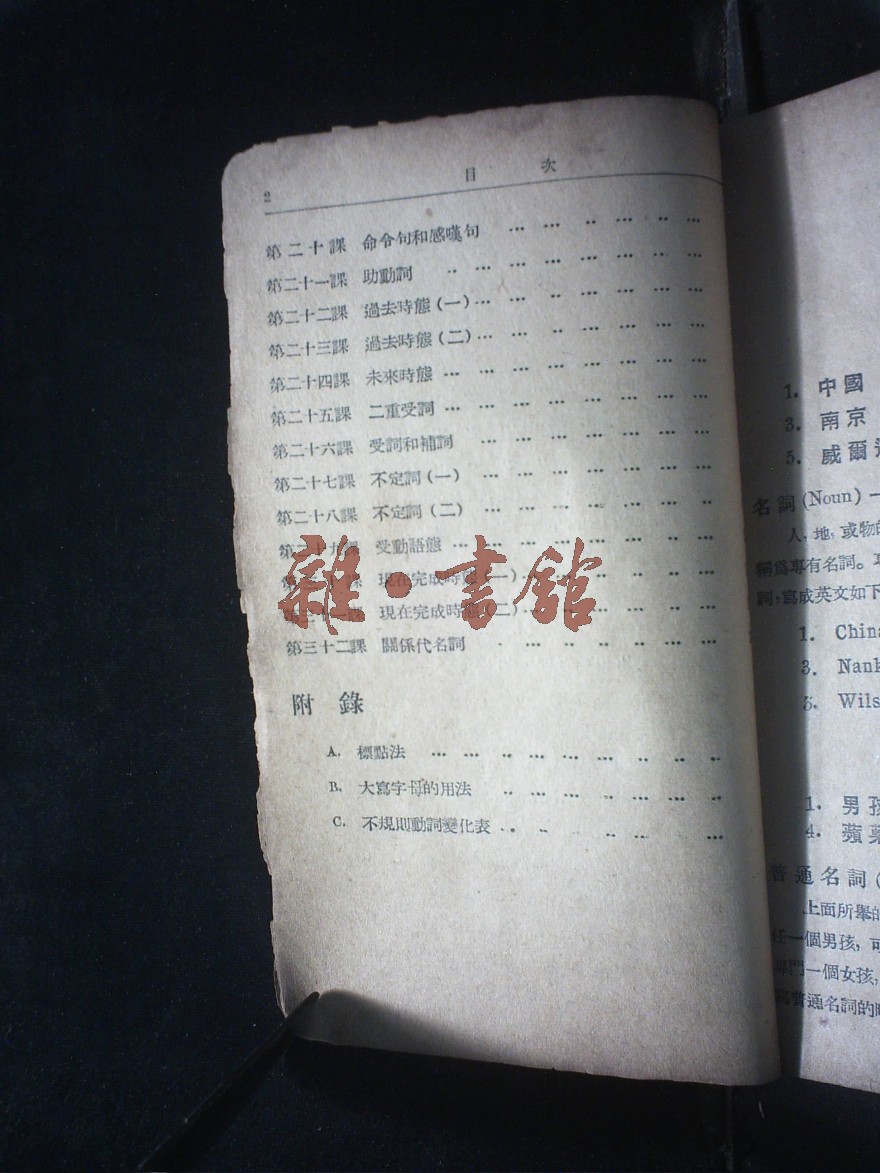 2
目次
第二十課 命令句和感嘆句
第二十一課 助動詞
第二十二課 過去時態(一)
第二十三課 過去時態(二)
第二十四課 未來時態
第二十五課 二重受詞
第二十六課 受詞和補詞
第二十七課 不定詞(一)
第二十八課 不定詞(二)
第二十九課 受動語態
第三十課 現在完成時態(一)
第三十一課 現在完成時態(二)
第三十二課 關係代名詞
附錄
A. 標點法
B. 大寫字母的用法
C. 不規則動詞變化表
雜·書館
1. 中國
3. 南京
5. 威爾
名詞(Noun)一
人，地，或物的
稱爲專有名詞。
詞，寫成英文如下
1. China
3. Nank
5. Wils
1. 男孩
4. 蘋菓
普通名詞(
上面所舉的
任一個男孩，可
專門一個女孩，
爲普通名詞的